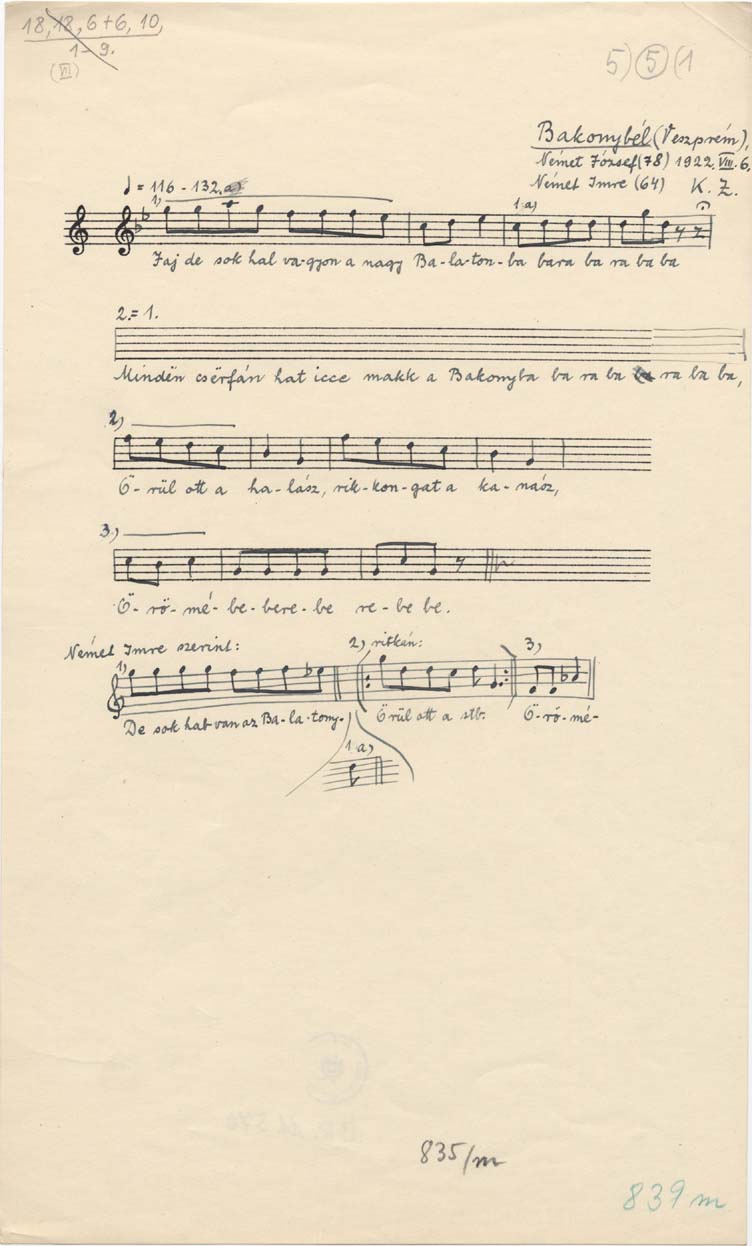 18, 18, 6+6, 10,
1-9.
(VII)
5) 5 (1
Bakonybél (Veszprém),
Német József (78) 1922. VIII. 6.
Német Imre (64) K. Z.
♩ = 116 - 132.
1) 1 a)
Jaj de sok hal va-gyon a nagy Ba-la-ton-ba bara ba ra ba ba
2. = 1.
Mindën csërfán hat icce makk a Bakonyba ba ra ba ra ba ba,
2)
Ö-rül ott a ha-lász, rik-kon-gat a ka-nász,
3)
Ö-rö-mé-be-bere-be re-be be.
Német Imre szerint:
1) 2) ritkán: 3)
De sok hal van az Ba-la-tony- Örül ott a stb. Ö-rö-mé-
1 a)
835/m
839 m